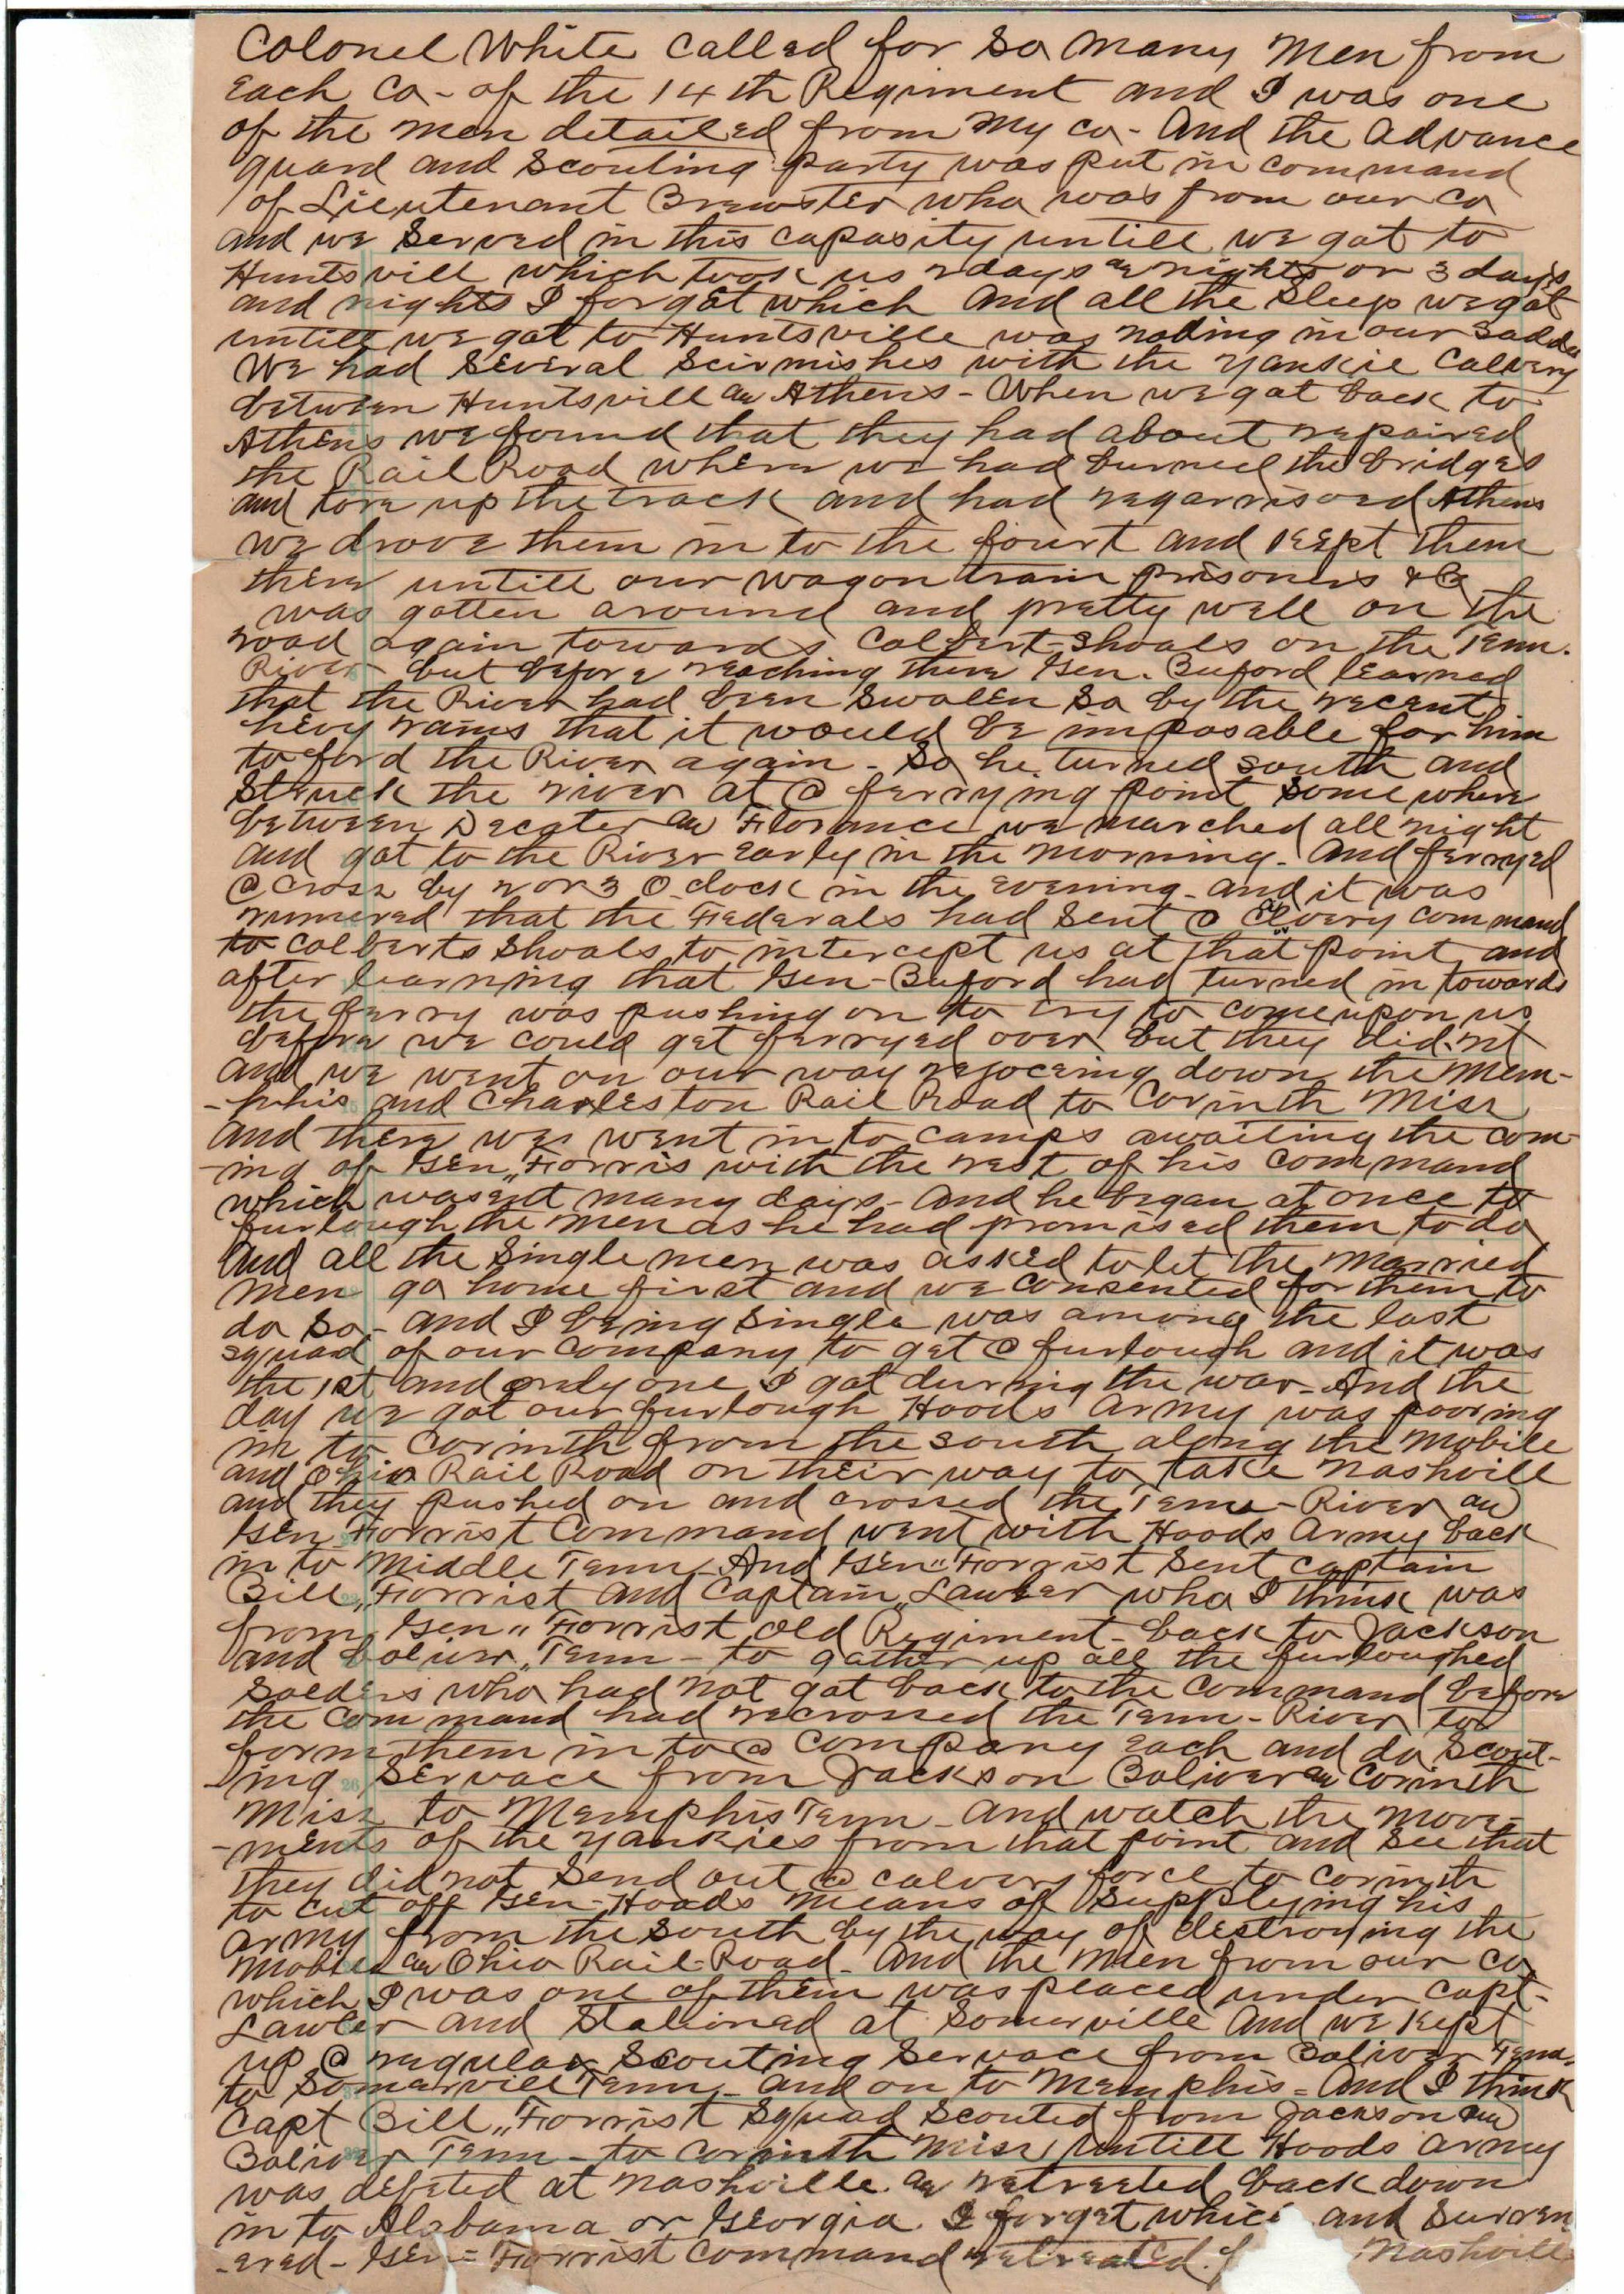 Colonel White called for so many men from
Each Co- of the 14th Regiment and I was one
of the men detailed from my co- And the advance
guard and Scouting party was put in command
of Lieutenant Brewster who was from our Co
and we Served in this capasity untill we got to
Huntsvill which took us 2 days & nights or 3 days
and nights I forgot which and all the Sleep we got
untill we got to Huntsville was noding in our Saddle
We had Several Scirmishes with the Yankie Calvery
between Huntsvill & Athens - When we got back to
Athens we found that they had about repaired
the Rail Road where we had burned the bridges
and tore up the track and had regarrisoed Athens
we drove them in to the fourt and kept them
there untill our wagon train prisoners &C
was gotten around and pretty well on the
road again towards Colbert-Shoals on the Tenn.
River but before reaching there Gen. Buford learned
that the River had been Swolen So by the recent
hevy rains that it would be imposable for him
to ford the River again - So he turned south and
Struck the river at @ ferrying point Some where
between Decater & Florance we marched all night
and got to the River early in the morning. And ferryed
@cross by 2 or 3 O clock in the evening - and it was
rumered that the Federals had Sent @ command
to Colberts Shoals to intercept us at that point and
after learning that Gen-Buford had turned in towards
the ferry was pushing on to try to come upon us
before we could get ferryed over but they did.nt
And we went on our way rejoceing down the Mem-
-phis and Charleston Rail Road to Corinth Miss
And there we went in to camps awaiting the com-
-ing of Gen,, Forris with the rest of his command
which wasent many days - And he began at once to
furlough the men as he had promised them to do
And all the Single men was asked to let the Married
Men go home first and we consented for them to
do So - and I being Single was among the last
squad of our Company to get @ furlough and it was
the 1st and only one I got durring the war - And the
day we got our furlough Hoods army was pooring
in to Corinth from the south along the Mobile
and Ohio Rail Road on their way to take Nashvill
and they pushed on and crossed the Tenn - River &
Gen Forrist Command went with Hoods Army back
in to Middle Tenn - And Gen" Forrist Sent Captain
Bill,, Forrist and Captain,, Lawler who I think was
from Gen" Forrist old Regiment - back to Jackson
and Boliver,, Tenn - to gather up all the furloughed
Solders who had not got back to the Command before
the Command had recrossed the Tenn - River to
form them in to @ Company each and do Scout-
-ing Servace from Jackson Boliver & Corinth
Miss to Memphis Tenn - and watch the move-
-ments of the Yankies from that point and See that
they did not Send out @ calvery force to Corinth
to cut off Gen - Hoods means of Supplying his
army from the South by the way of destroying the
Mobile & Ohio Rail-Road - And the men from our Co
which I was one of them was placed under Capt-
Lawler and Stationed at Somerville And we kept
up @ regular Scouting Servace from Boliver Tenn.
to Somervill Tenn - and on to Memphis - And I think
Capt Bill,, Forrist Squad Scouted from Jackson &
Boliver Tenn - to Corinth Miss untill Hoods army
was defeted at Nashville & retreated back down
in to Alabama or Georgia I forget which and Surren
-ered - Gen = Forrist Command retreated. Nashvill